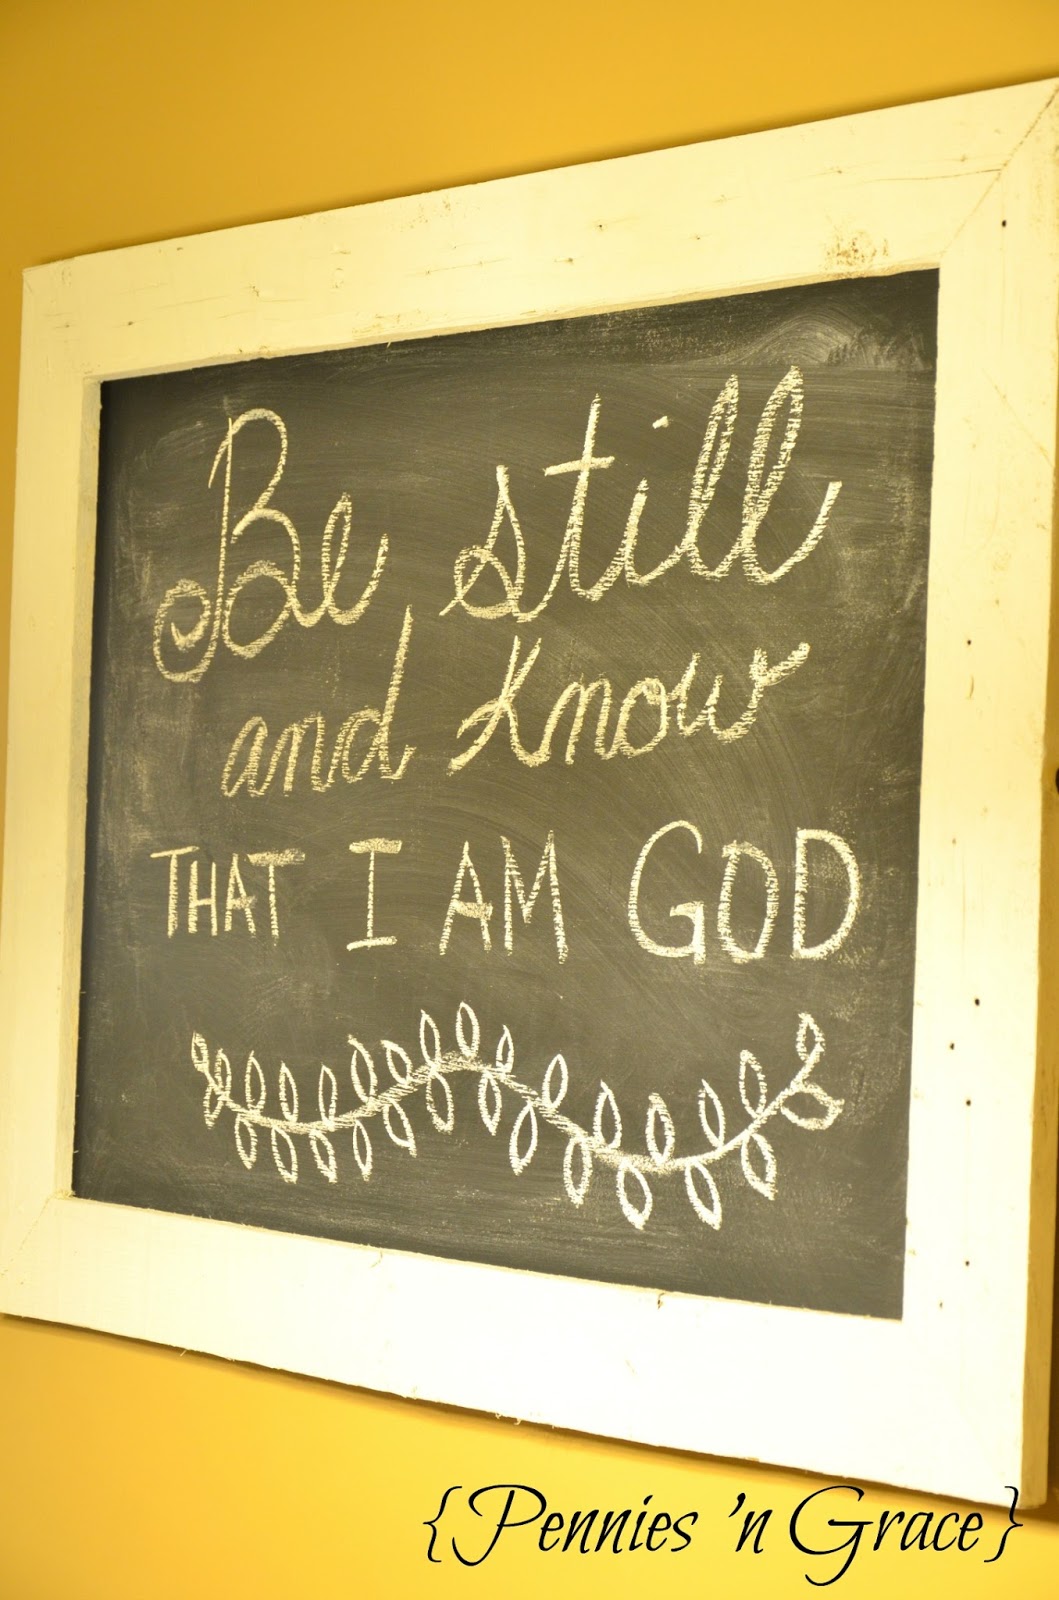 Be still
and know
THAT I AM GOD
{Pennies 'n Grace}